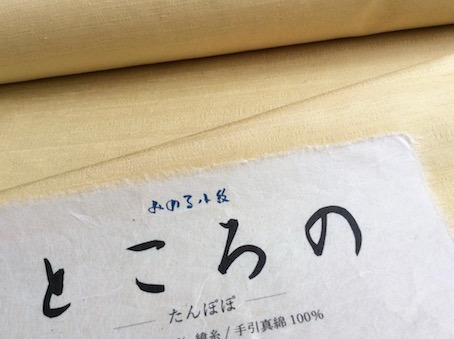 小紋
ところの
たんぽぽ
緯糸 / 手引真綿 100%